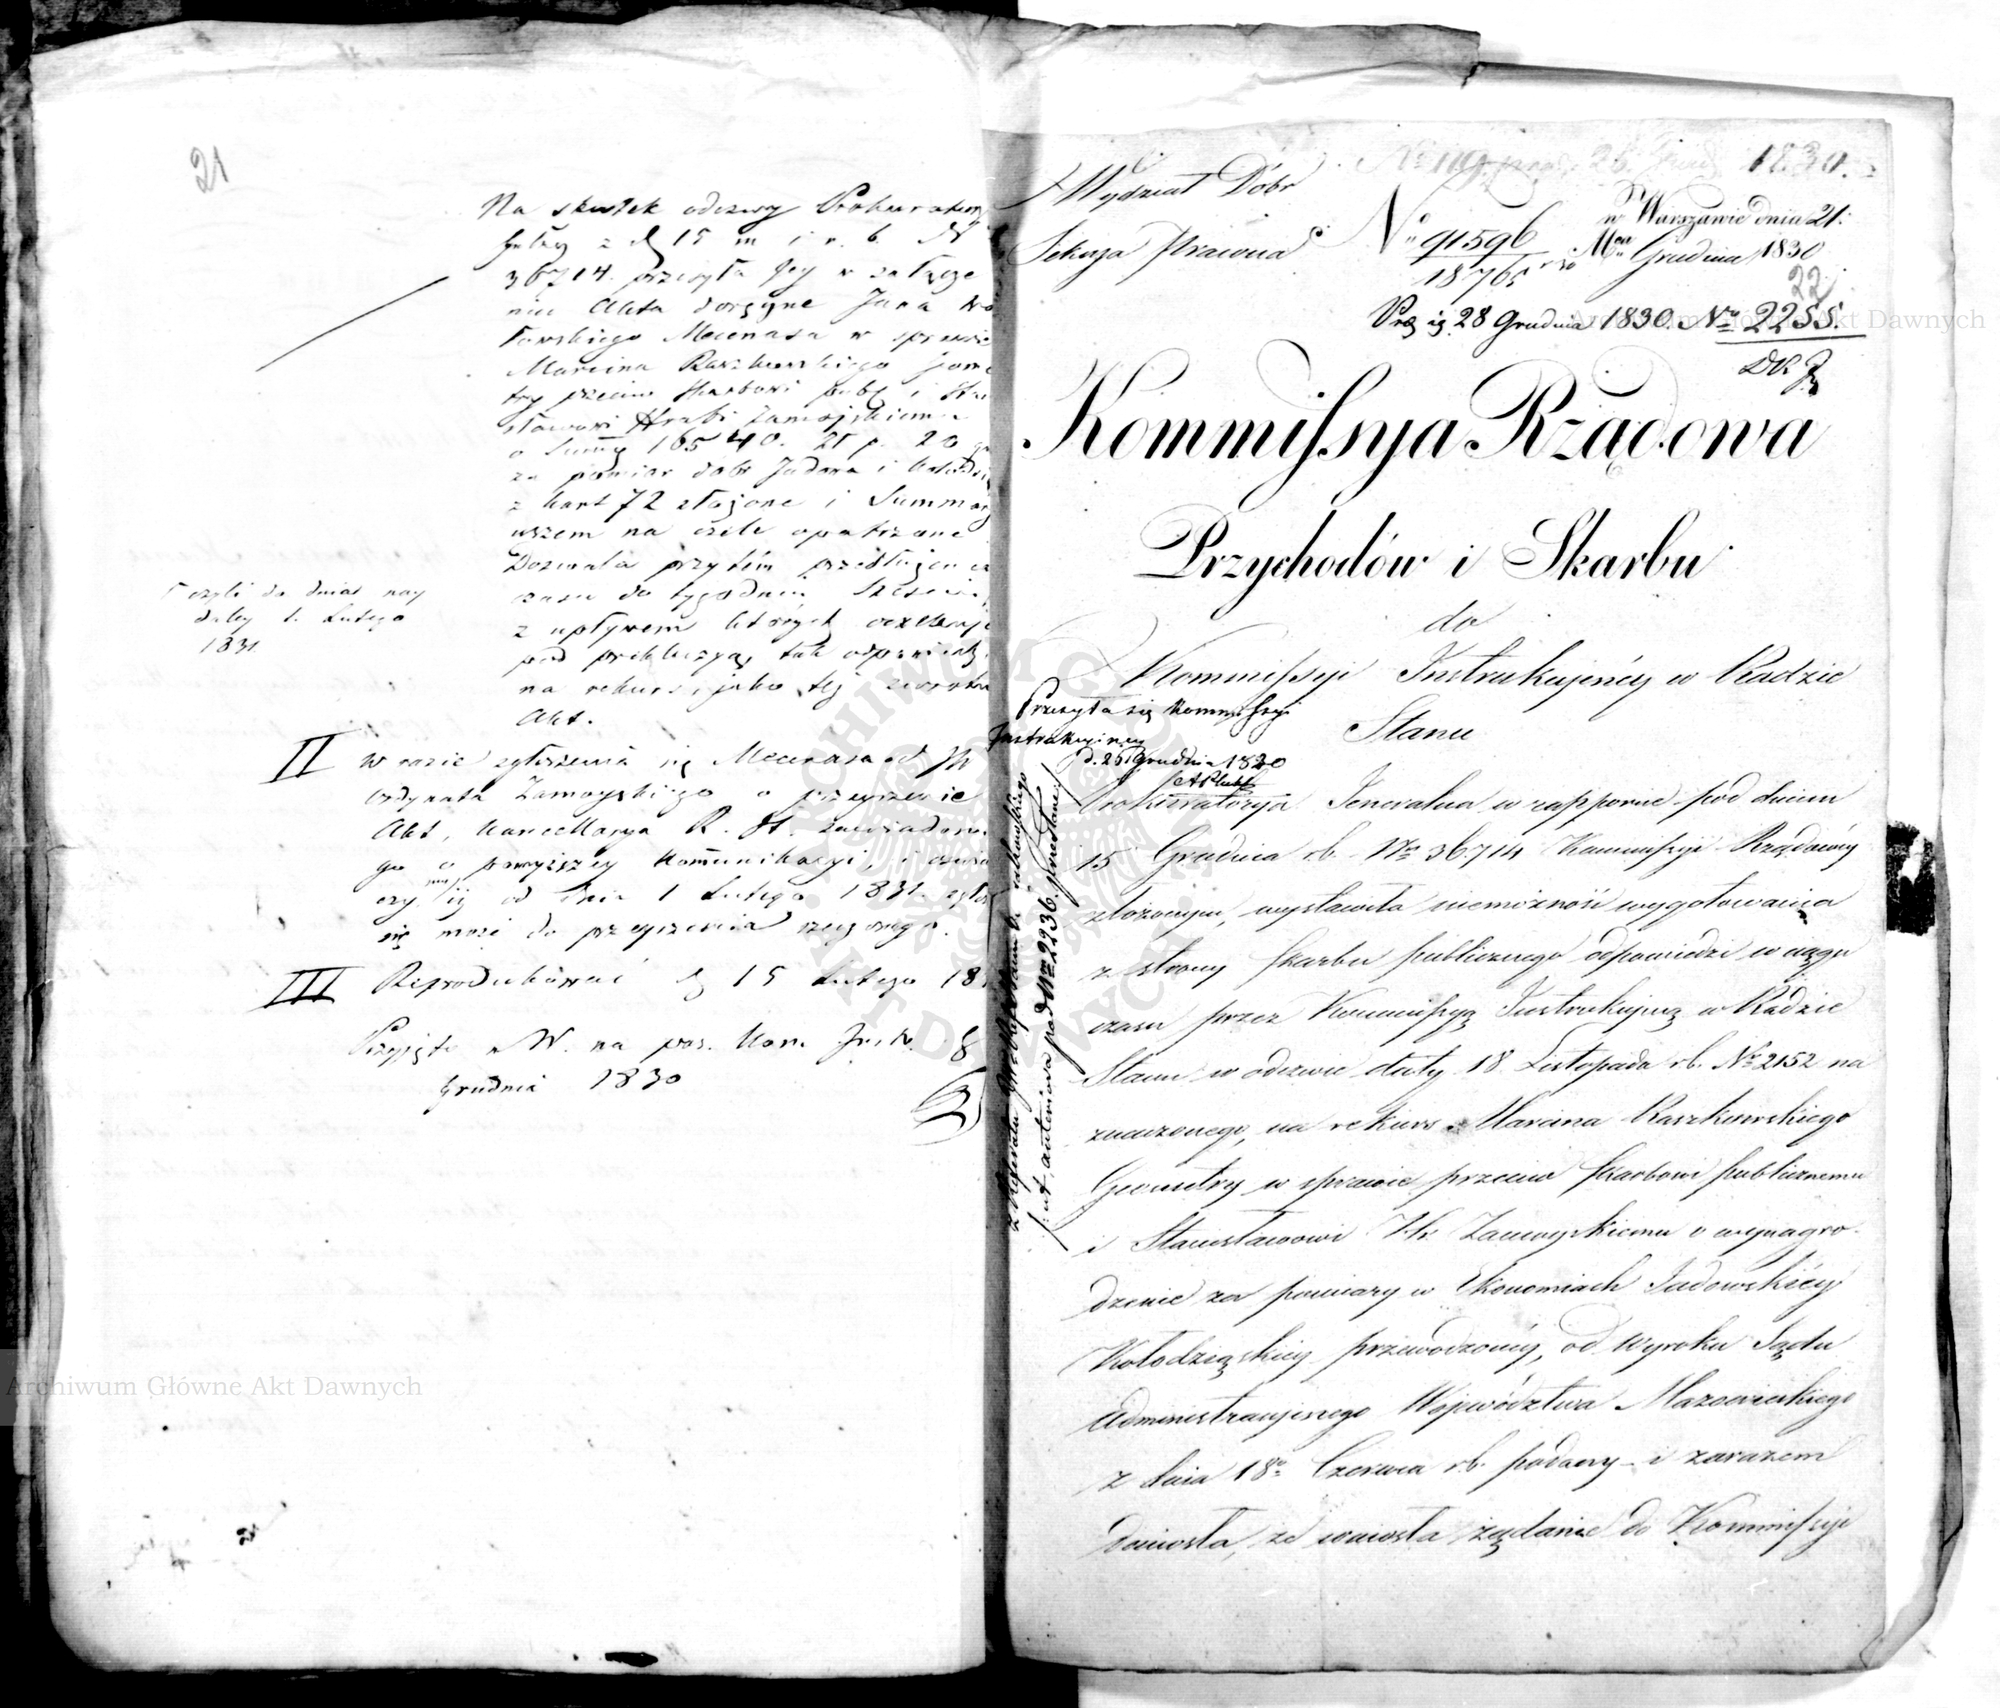 21
Na skutek odezwy Prokuratory
Jnlney z d 15 m i r. b. N
36714. przesyła Jey w załącze
niu Akta dorywne Jana Wo
łowskiego Mecenasa w sprawie
Marcina Raszkowskiego Jeome
try przeciw Skarbowi publ i Sta
sławowi Hrabi Zamojskiemu
o Summę 18540. zł p. 20
za pomiar dobr Jadowa i Kołodzią
z kart 72 złożone i Summary
uszem na czele opatrzone
Dozwala przytém przedłużenia
czasu do tygodni Sześciu,
czyli do dnia nay
daley 1. Lutego
1831
z upływem których oczekuje
pod prekluzyą, tak odpowiedzi
na rekurs, jako tej zwrotu
Akt.
II w razie zgłoszenia się Mecenasa od JW
Ordynata Zamoyskiego o przeyrzenie
Akt, Kancellarya R. St. zawiadomi
go o powyższey Komunikacyi, i
czy iż od dnia 1 Lutego 1831. zgłosić
się może do przeyrzenia
III Reprodukować d 15 Lutego 18
Przyjęto w W. na pos. Kom. Instr.
Grudnia 1830
26. Grud 1830.
Wydział Dóbr
Sekcja Prawna
No 91596
18765
w Warszawie dnia 21:
Mca Grudnia 1830
22
Prez ig 28 Grudnia 1830 No 2255.
Kommissya Rządowa
Przychodów i Skarbu
do
Kommissyi Instrukcyjnéy w Radzie
Stanu
Przesyła się Kommissyi
Instrukcyjney
d. 26 Grudnia 1830
Prokuratorya Jeneralna w rapporcie pod dniem
15 Grudnia rb. No 36714 Kommissyi Rządowéy
złożonym, wystawiła niemożność wygotowania
z strony Skarbu publicznego odpowiedzi w ciągu
czasu przez Kommissyą Instrukcyjną w Radzie
Stanu w odezwie daty 18 Listopada rb. No 2152 na
znaczonego, na rekurs Marcina Raszkowskiego
Geometry w sprawie przeciw Skarbowi publicznemu
i Stanisławowi Hr. Zamoyskiemu o wynagro-
dzenie za pomiary w Ekonomiach Jadowskiéy
Kołodziąskiey przewodzonéy, od Wyroku Sądu
Administracyjnego Województwa Mazowieckiego
z dnia 18o Czerwca rb. podany i zarazem
doniosła, że wniosła żądanie do Kommissyi
z Referatu
pod No 2236 przesłane
Archiwum Główne Akt Dawnych
Archiwum Główne Akt Dawnych